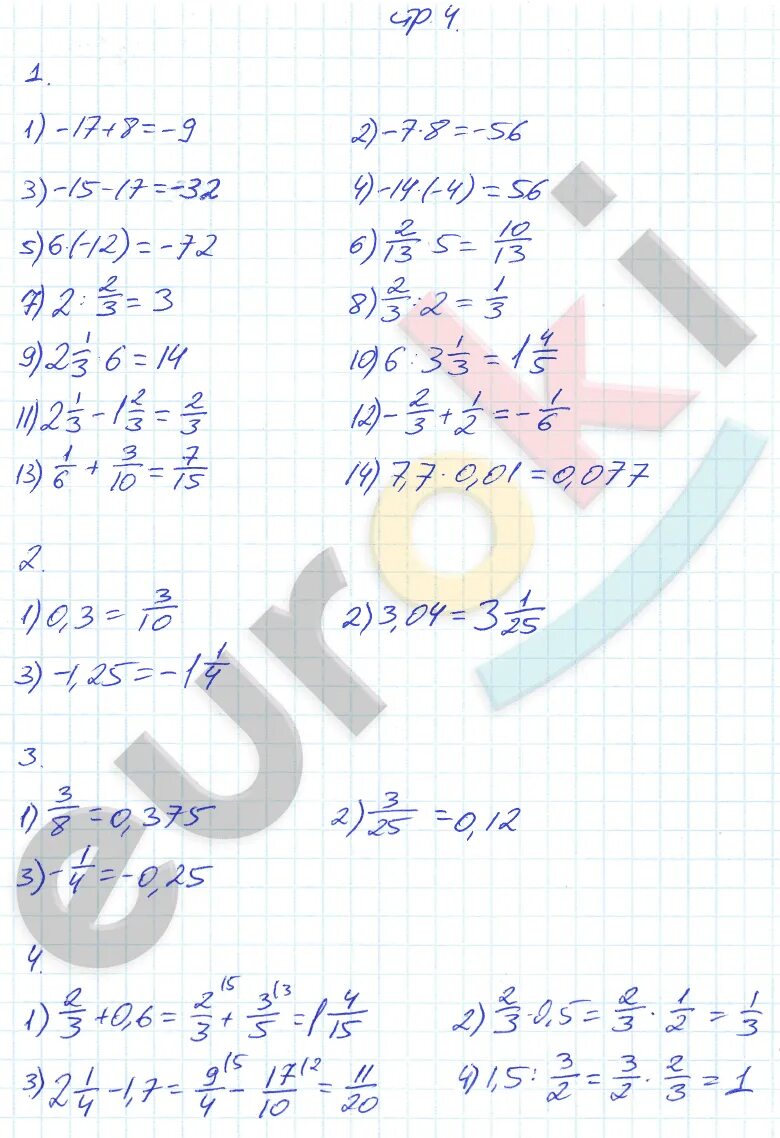 стр. 4.
1.
1) -17+8=-9 2) -7·8=-56
3) -15-17=-32 4) -14·(-4)=56
5) 6·(-12)=-72 6) 2/13·5=10/13
7) 2:2/3=3 8) 2/3:2=1/3
9) 2 1/3·6=14 10) 6:3 1/3=1 4/5
11) 2 1/3-1 2/3=2/3 12) -2/3+1/2=-1/6
13) 1/6+3/10=7/15 14) 7,7·0,01=0,077
2.
1) 0,3=3/10 2) 3,04=3 1/25
3) -1,25=-1 1/4
3.
1) 3/8=0,375 2) 3/25=0,12
3) -1/4=-0,25
4.
1) 2/3+0,6=2/3 (5+3/5 (3=1 4/15 2) 2/3·0,5=2/3·1/2=1/3
3) 2 1/4-1,7=9/4 (5-17/10 (2=11/20 4) 1,5:3/2=3/2·2/3=1
euroki